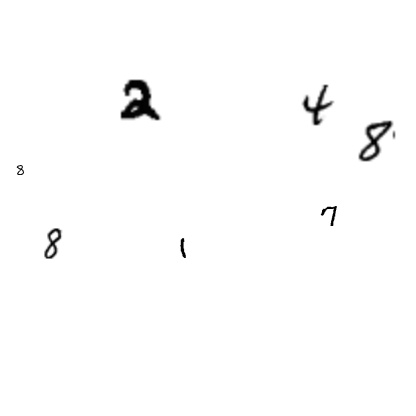 2 4
8
8
7
8 1